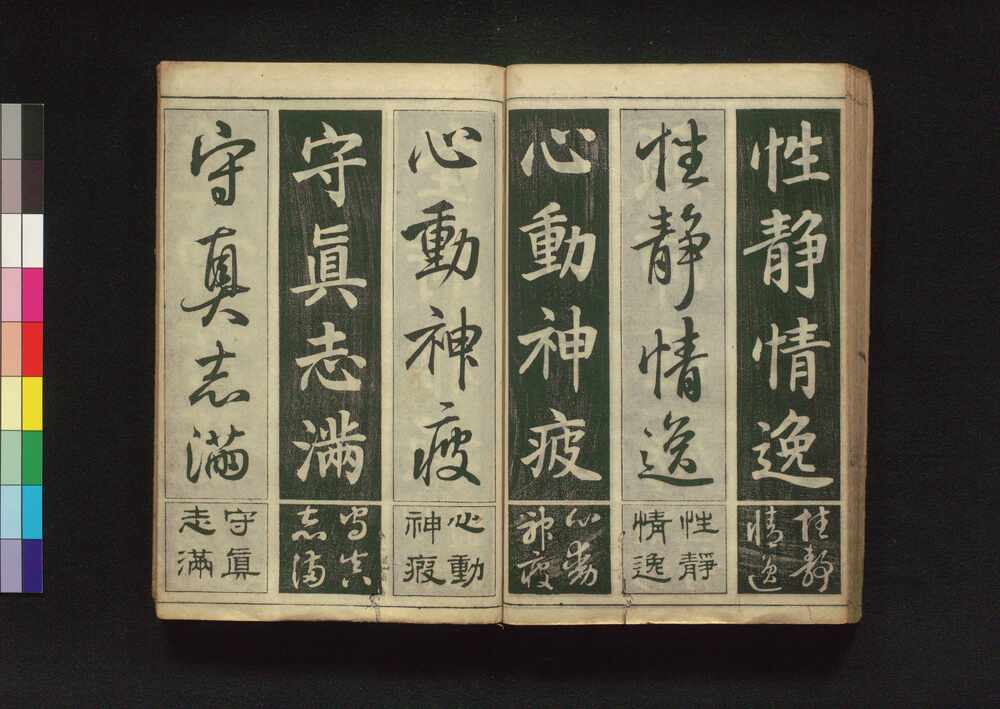 性静情逸
性静情逸
心動神疲
性靜
情逸
性靜
情逸
心動
神疲
心動神疲
守眞志満
守真志満
心動
神疲
守眞
志滿
守眞
志滿